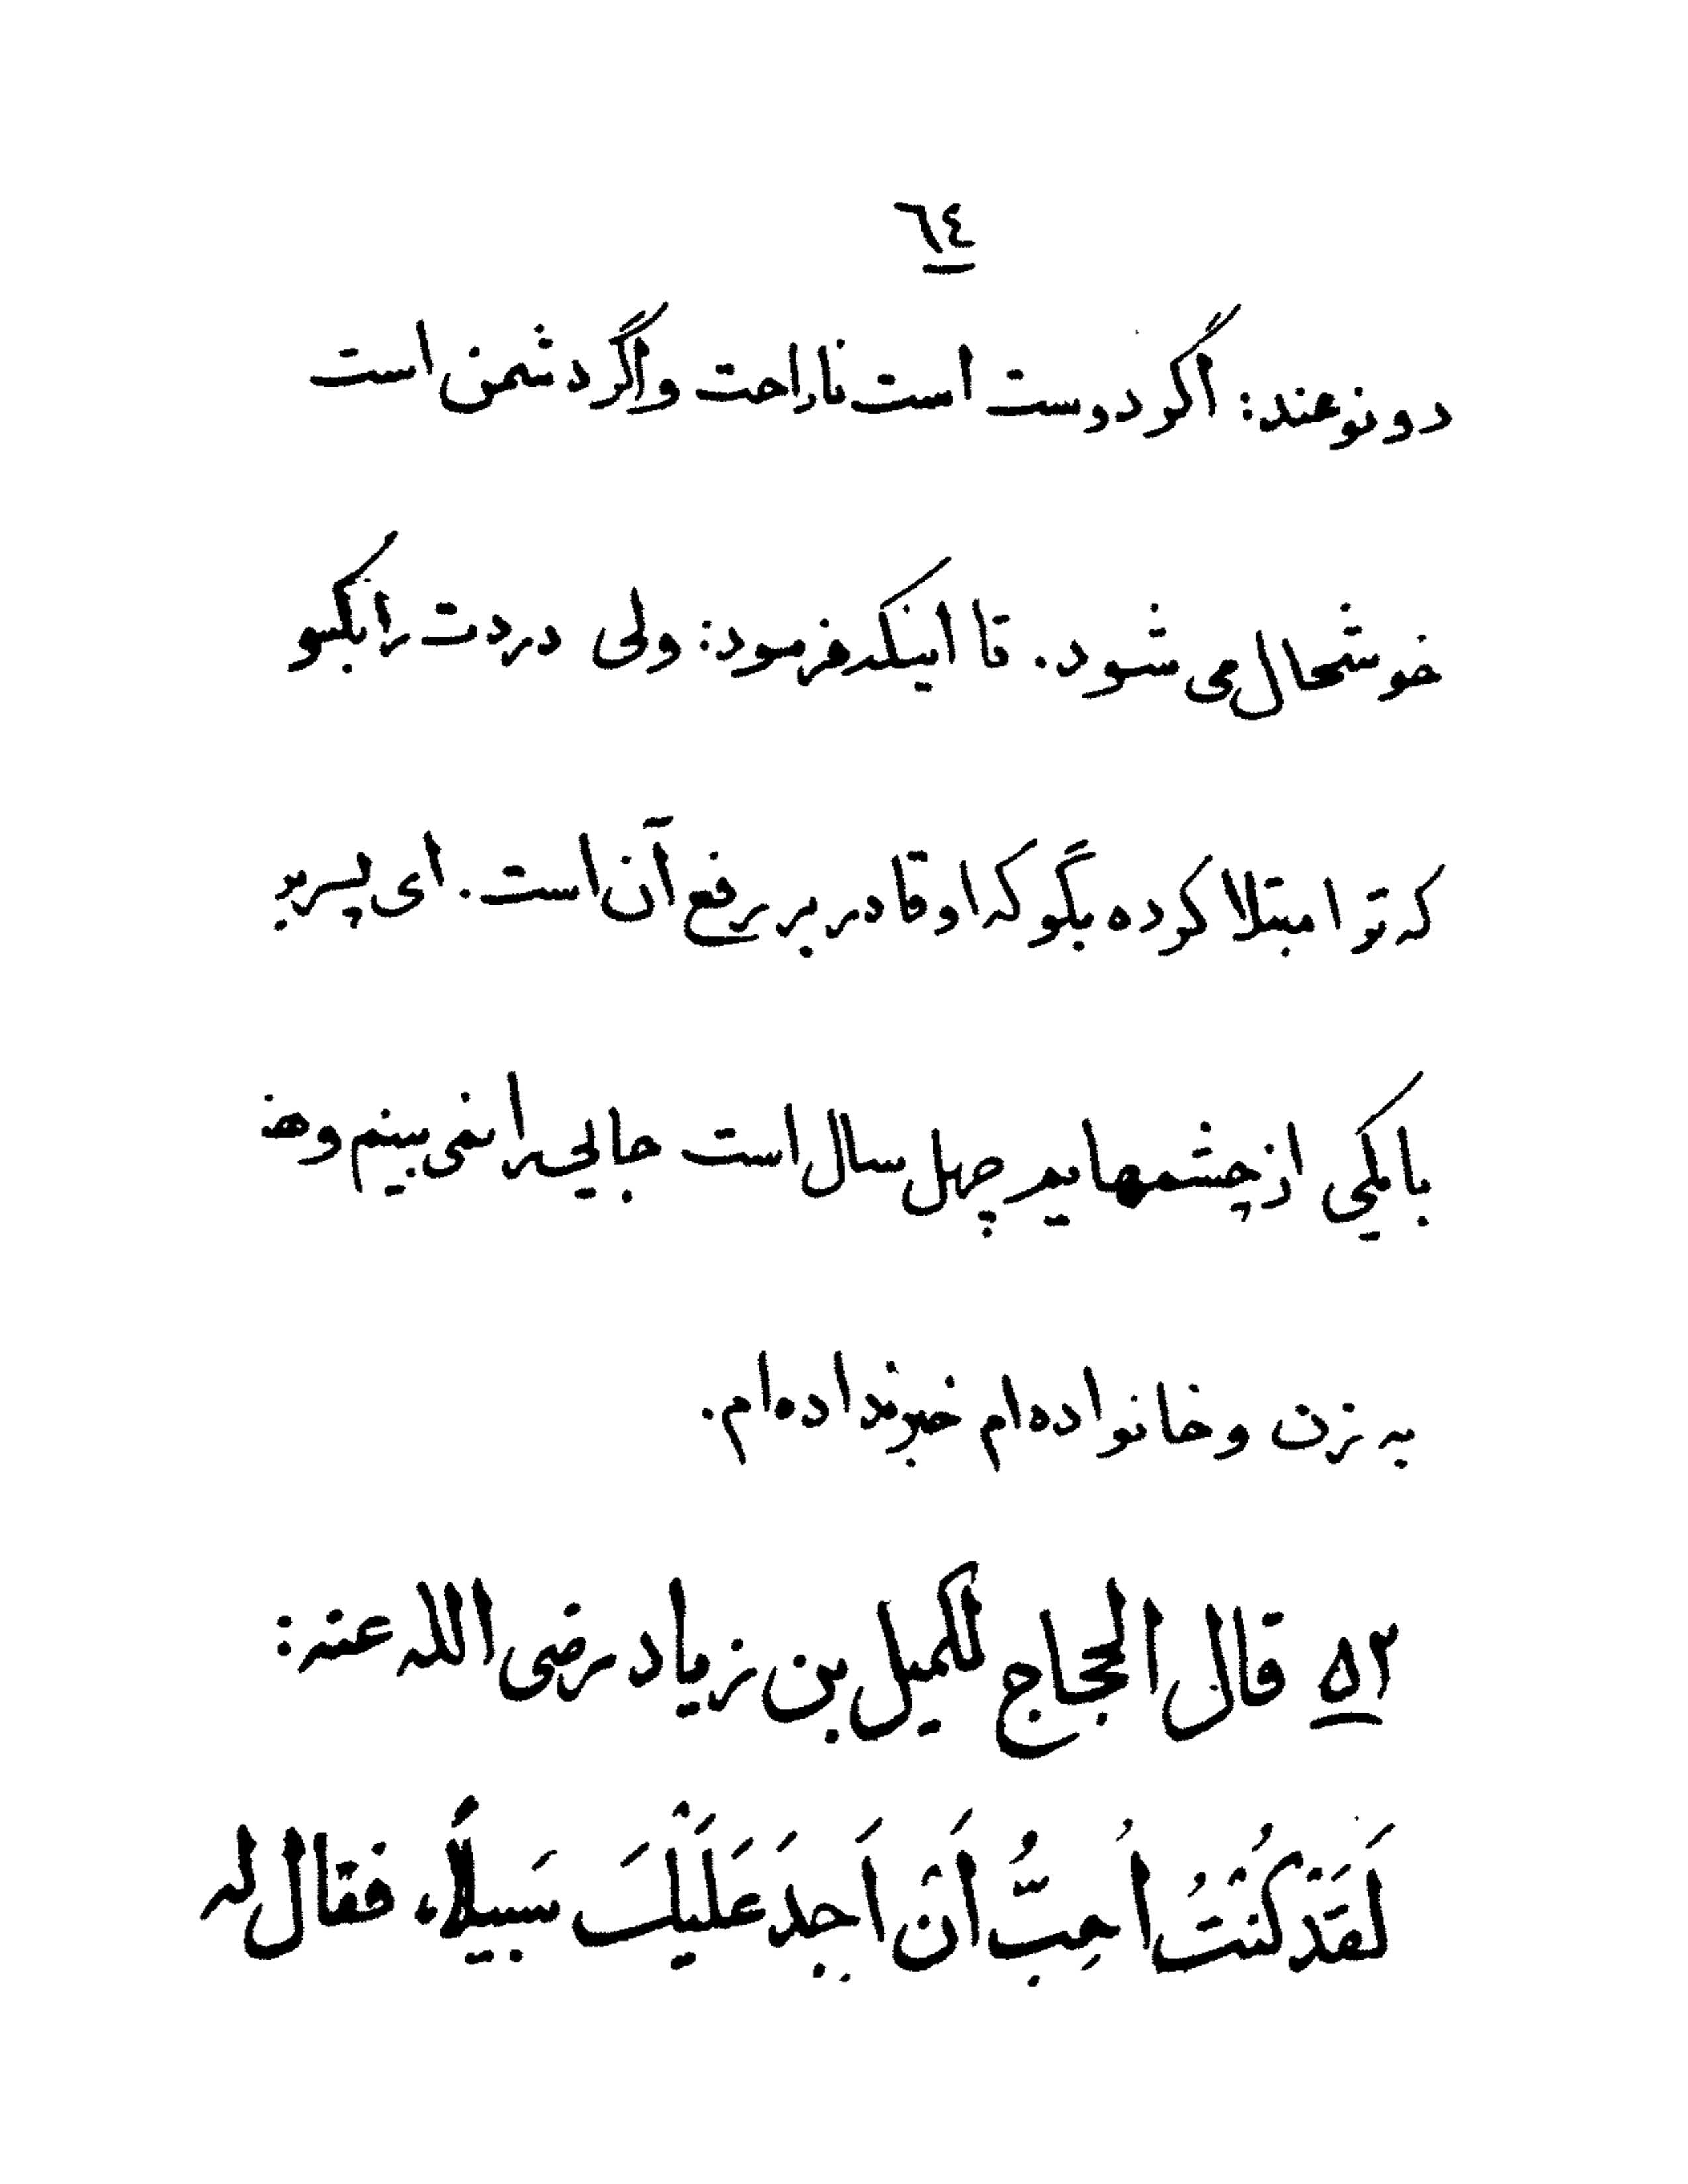 ٦٤
دو نوعند: اگر دوست است ناراحت و اگر دشمن است
خوشحال می شود. تا اینکه فرمود: ولی دردت را بکسو
که تو ا مبتلا کرده بگو که او قادر بر رفع آن است. ای پسر بر
با یکی از چشمهایم چهل سال است جایی را نمی بینم و هنـ
به زن و خانواده ام خبر نداده ام.
۵۲ قال الحجاج لکمیل بن زیاد رضی الله عنه:
لَقَدْ کُنْتُ اُحِبُّ أَنْ اَجِدَ عَلَیْكَ سَبیلاً، فقال له